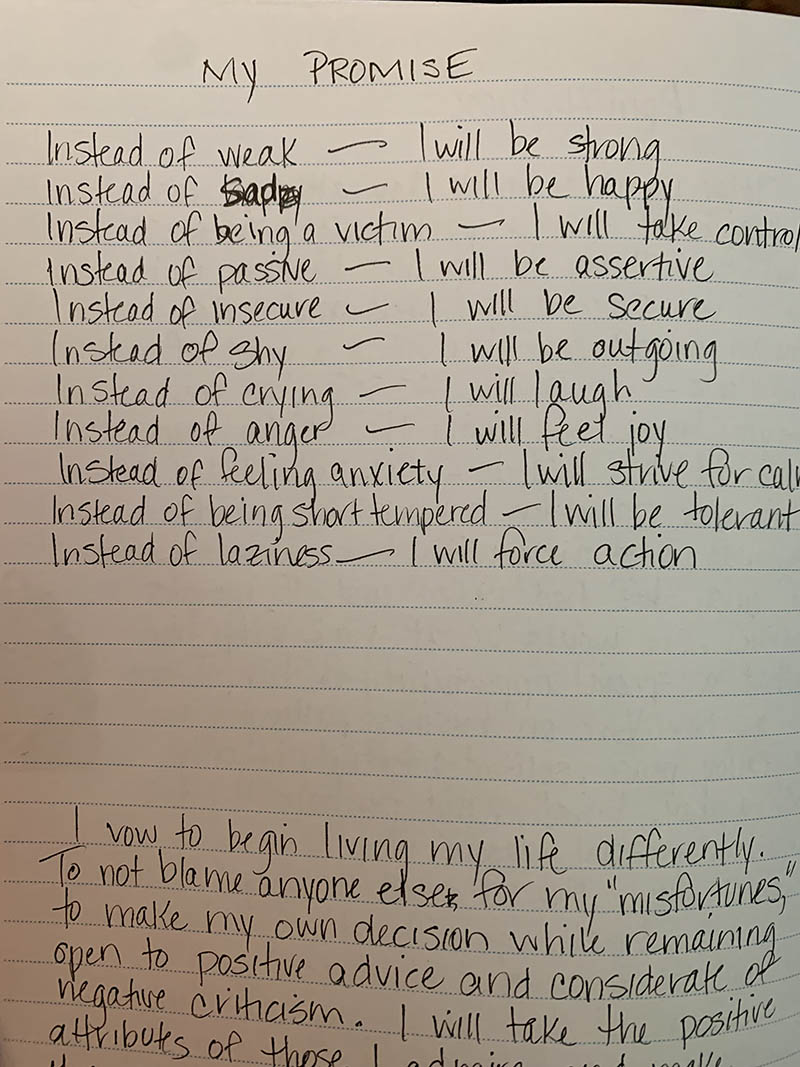 My PROMISE
Instead of weak — I will be strong
Instead of — I will be happy
Instead of being a victim — I will take control
Instead of passive — I will be assertive
Instead of insecure — I will be secure
Instead of shy — I will be outgoing
Instead of crying — I will laugh
Instead of anger — I will feel joy
Instead of feeling anxiety — I will strive for cal
Instead of being short tempered — I will be tolerant
Instead of laziness — I will force action
I vow to begin living my life differently.
To not blame anyone else for my "misfortunes,"
to make my own decision while remaining
open to positive advice and considerate of
negative criticism. I will take the positive
attributes of those I